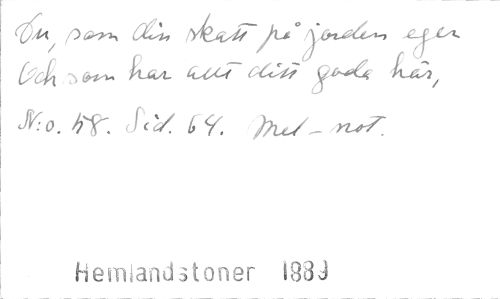 Du, som din skatt på jorden eger
Och som har allt ditt goda här,
N:o. 58. Sid. 64. Mel-not.
Hemlandstoner 1889